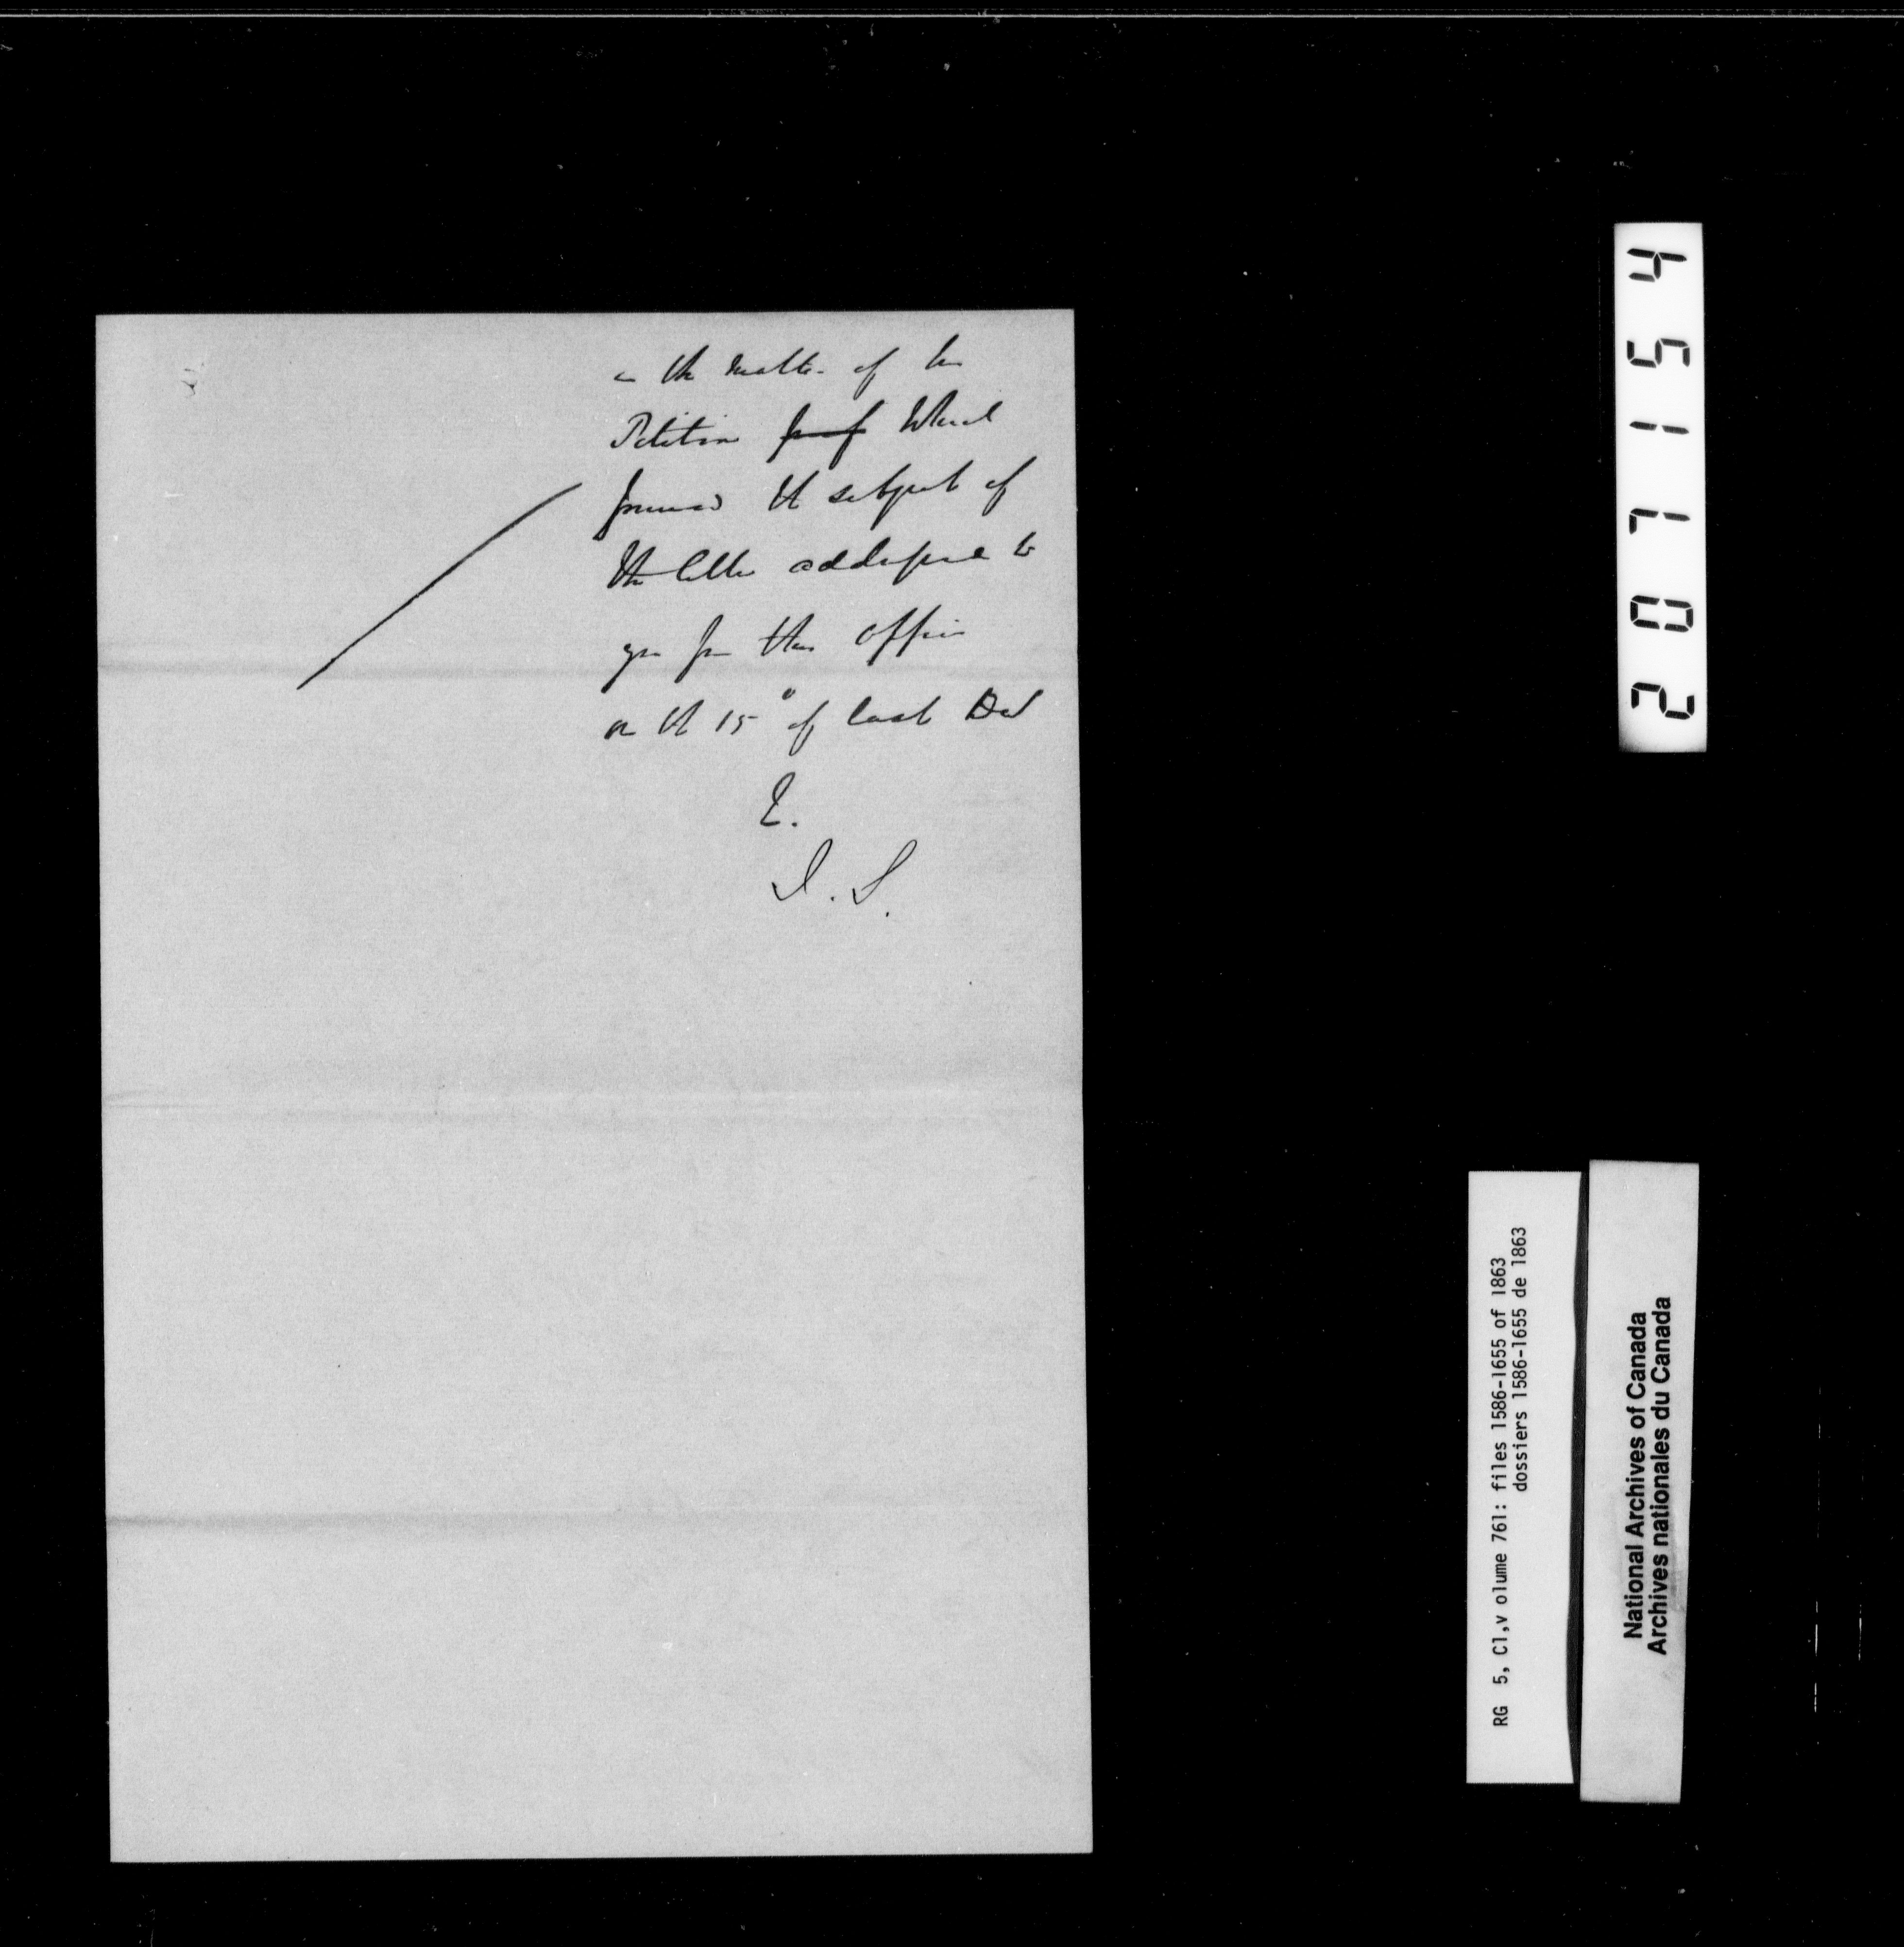 in the matter of his
Petition which
formed the subject of
the letter addressed to
you from this office
on the 15" of last Dec
&.
207154
RG 5, C1,v olume 761: files 1586-1655 of 1863
dossiers 1586-1655 de 1863
National Archives of Canada
Archives nationales du Canada